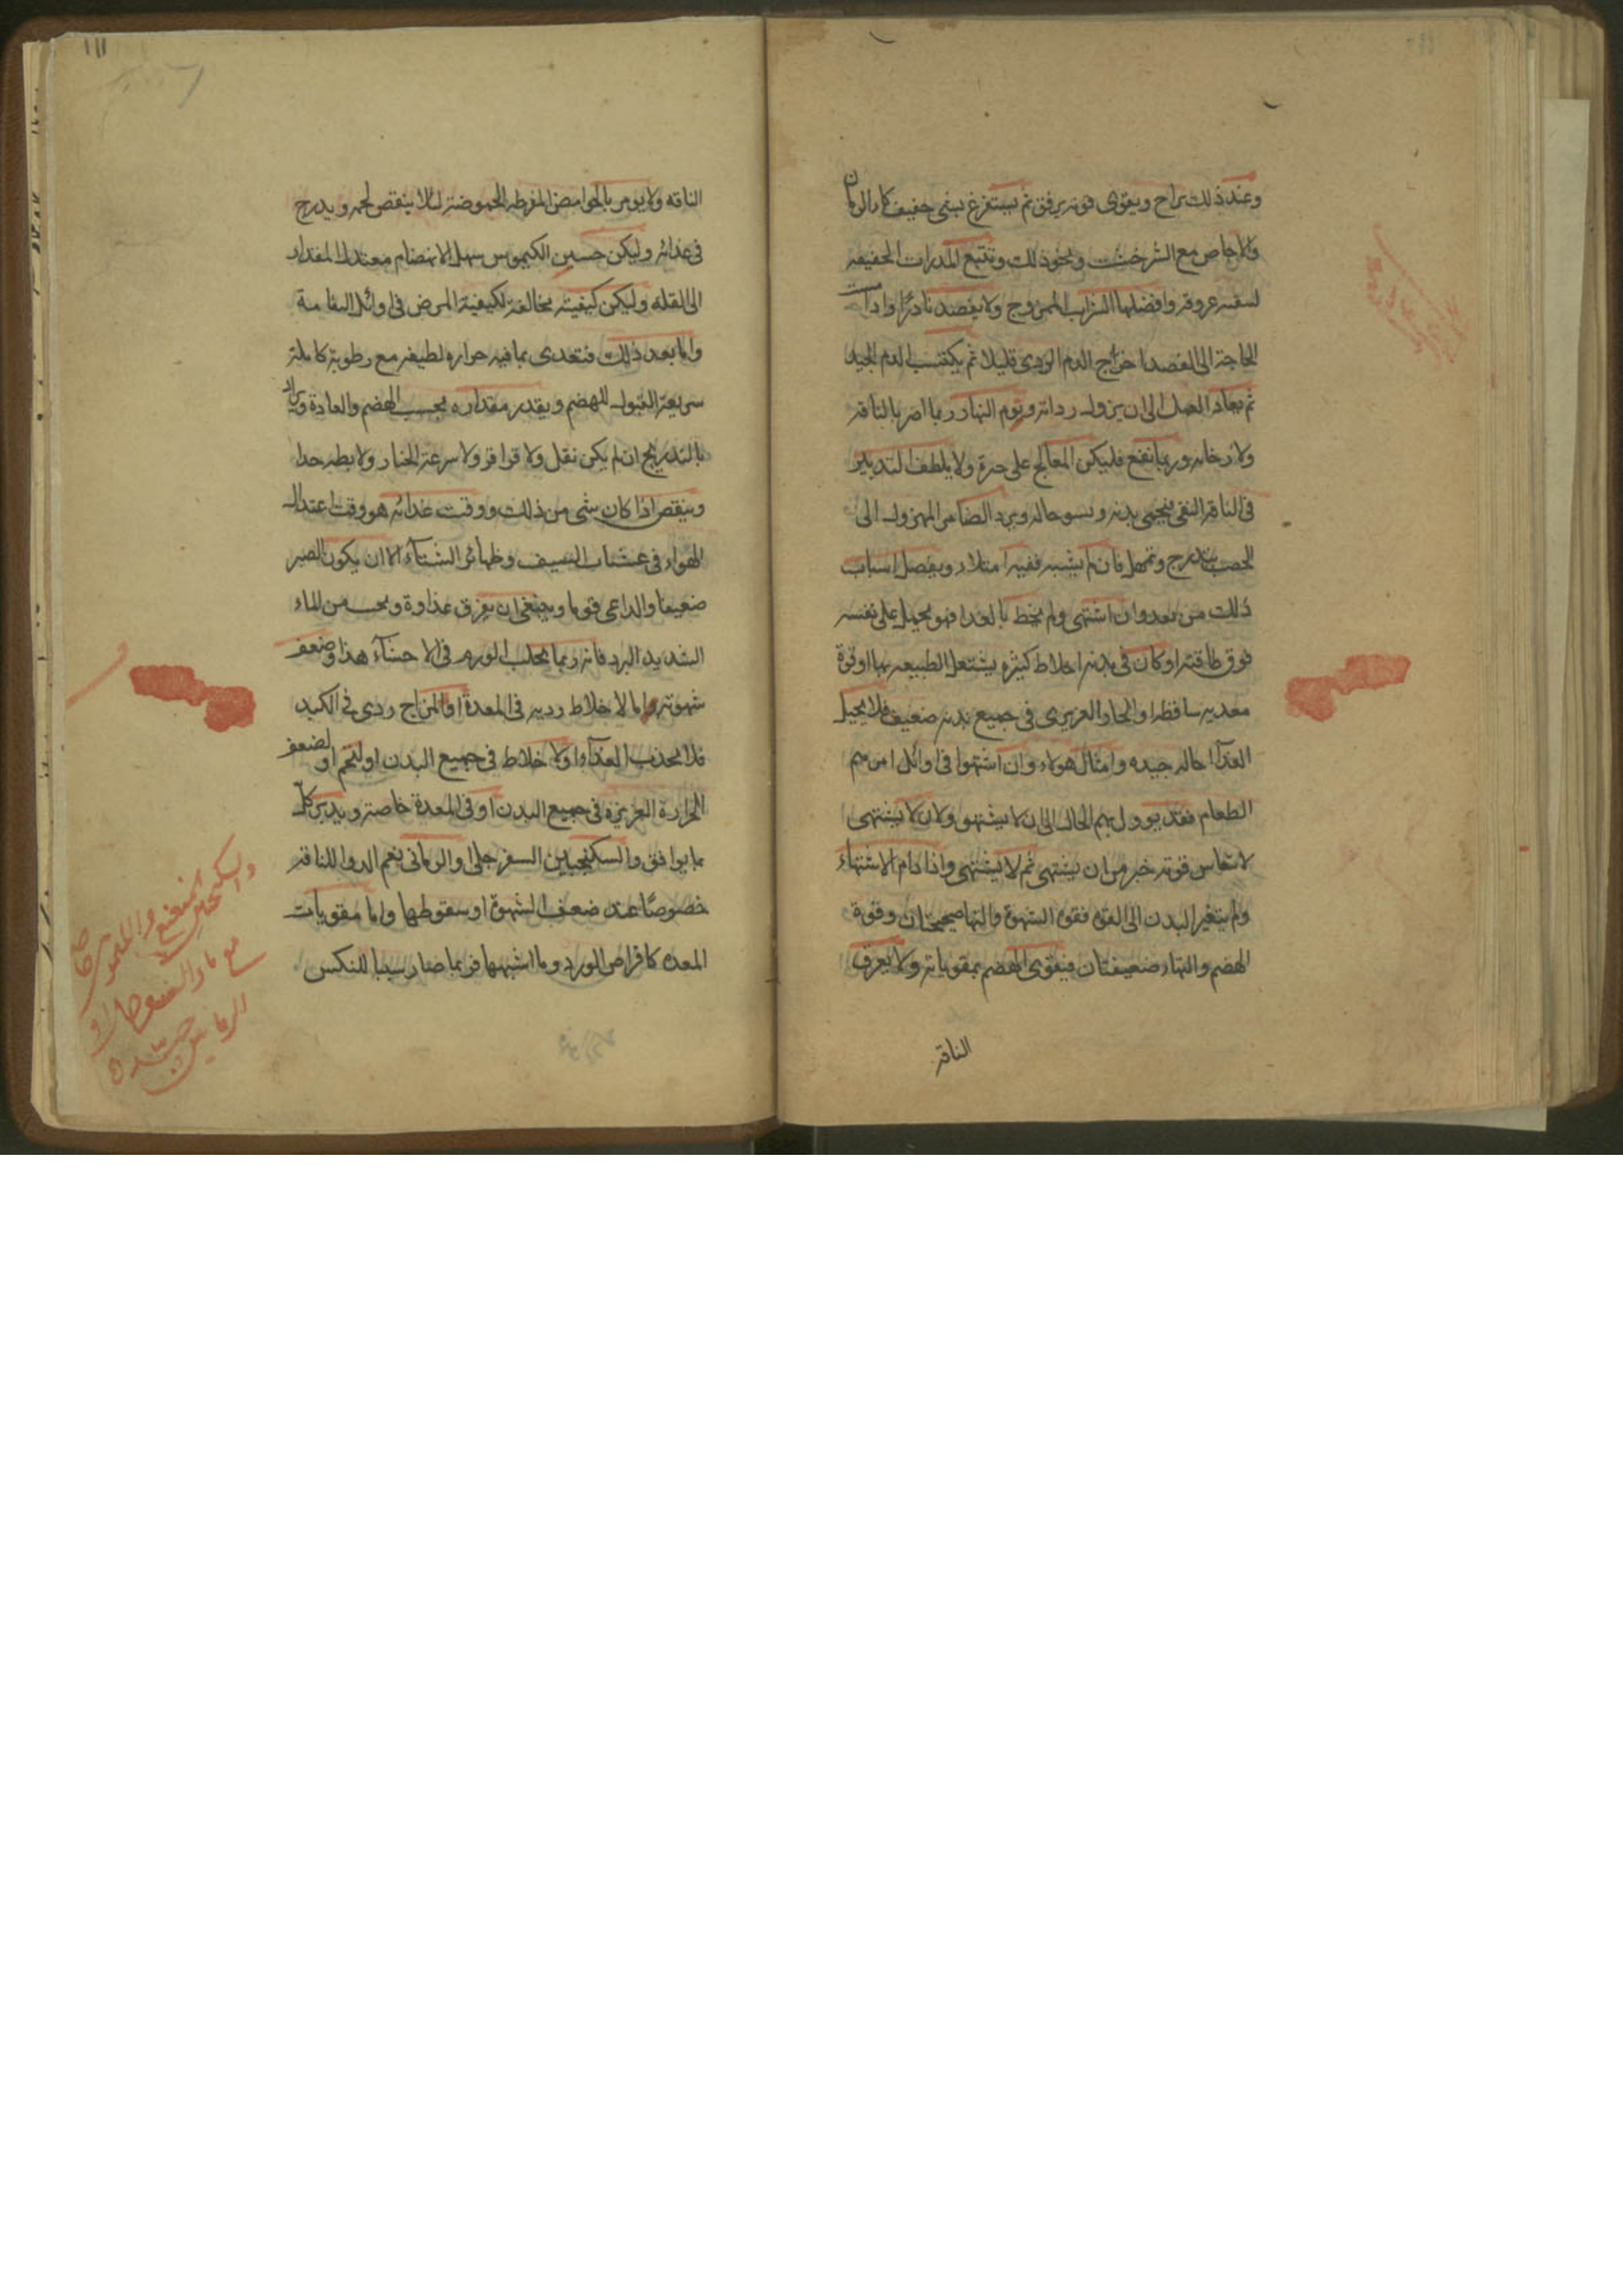 وعند ذلك يراح ويقوى قوته برفق ثم يستفرغ بشى خفيف كماء الرمان
والاجاص مع الشرخشت ونحو ذلك وتتبع المدرات الخفيفه
عروقه وافضلها الشراب الممزوج ولا يفصد نادرًا واذا
الحاجة الى الفصد اخراج الدم الردى قليلا ثم يكتسب الدم الجيد
ثم يعاد العمل الى ان يزول رداته ونوم النهار ربما اضر بالناقه
ولارخايه وربما نفع فليكن المعالج على حرة ولا يلطف التدبير
فى الناقه النقى فيحمى بدنه ويسو حاله ويرد الضامر المهزول الى
الخصب بتدريج وتمهل فان لم يشبه ففيه امتلاء ويفصل اسباب
ذلك من بعد وان اشتهى ولم يحظ بالغدا فهو يحيل على نفسه
فوق طاقته او كان فى بدنه اخلاط كثيره يشتعل الطبيعه بها او قوة
معديه ساقطه او الحار الغريزى فى جميع بدنه ضعيف فلا يحيل
الغدآ احاله جيده وامثال هولاء وان اشتهوا فى اوائل امرهم
الطعام فقد يوول بهم الحال الى ان لا يشتهو ولان لا يشتهى
لانتعاش قوته خير من ان يشتهى ثم لا يشتهى واذا دام الاشتهاء
ولم يتغير البدن الى القوه فقوه الشهوة والتها صحيحتان وقوة
الهضم والتهاء ضعيفتان فيقوى الهضم بمقوياته ولا يعرف
الناقه
١١١
الناقه ولا يومر بالحوامض المفرطه الحموضة لئلا ينقص لحمه ويدرج
فى غدائه وليكن حسن الكيموس سهل الانهضام معتدل المقدار
الى القله وليكن كيفيته مخالفة لكيفية المرض فى اوائل السقامة
واما بعد ذلك فتغدى بما فيه حراره لطيفه مع رطوبة كاملة
سريعة القبول للهضم ويقدر مقداره بحسب الهضم والعادة ويزاد
بالتدريج ان لم يكن ثقل ولا قراقر ولا سرعة انحدار ولا بطو جدا
وينقص اذا كان شى من ذلك ووقت غدائه هو وقت اعتدال
الهواء فى عشيات الصيف وظهائر الشتآء الا ان يكون الصبر
ضعيفا والداعى قويا وينبغى ان يفرق غداوة ويجتنب من الماء
الشديد البرد فانه ربما يجلب الورم فى الاحشآء هذا وضعف
شهوته اما لاخلاط رديه فى المعدة او المزاج ردى فى الكبد
فلا يجذب الغدآء اولا خلاط فى جميع البدن او لتخم او لضعف
الحرارة الغريزه فى جميع البدن او فى المعدة خاصة ويدبر كل
بما يوافق والسكنجبين السفرجلى والرمانى نعم الدوا للناقه
خصوصًا عند ضعف الشهوة او سقوطها واما مقويات
المعده كاقراص الورد وما اشبهها فربما صار سببا للنكس
والسكنجبين
مع ماء